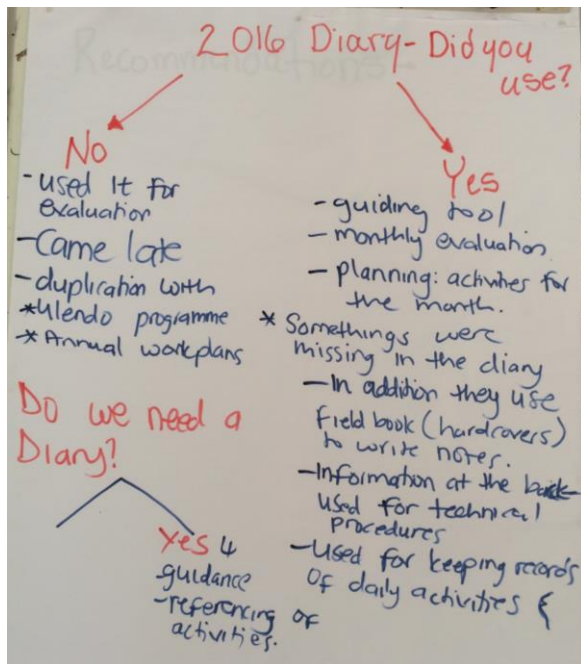 Recommendations -
2016 Diary - Did you
use?
No
- used it for
evaluation
- Came late
- duplication with
* Ulendo programme
* Annual workplans
Do we need a
Diary?
Yes 4
- guidance
- referencing of
activities.
Yes
- guiding tool
- monthly evaluation
- planning: activities for
the month.
* Somethings were
missing in the diary
- In addition they use
field book (hardcovers)
to write notes.
- Information at the back
used for technical
procedures
- Used for keeping records
of daily activities {